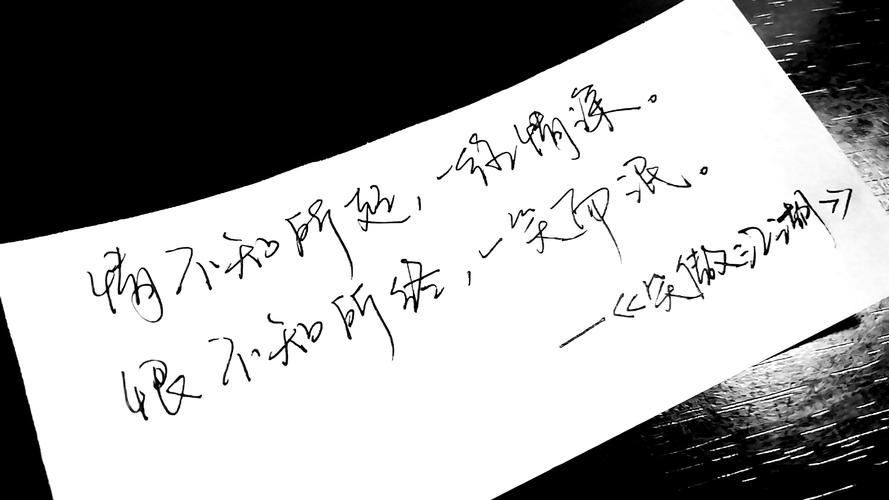 情不知所起，一往情深。
恨不知所终，一笑而泯。
—《笑傲江湖》